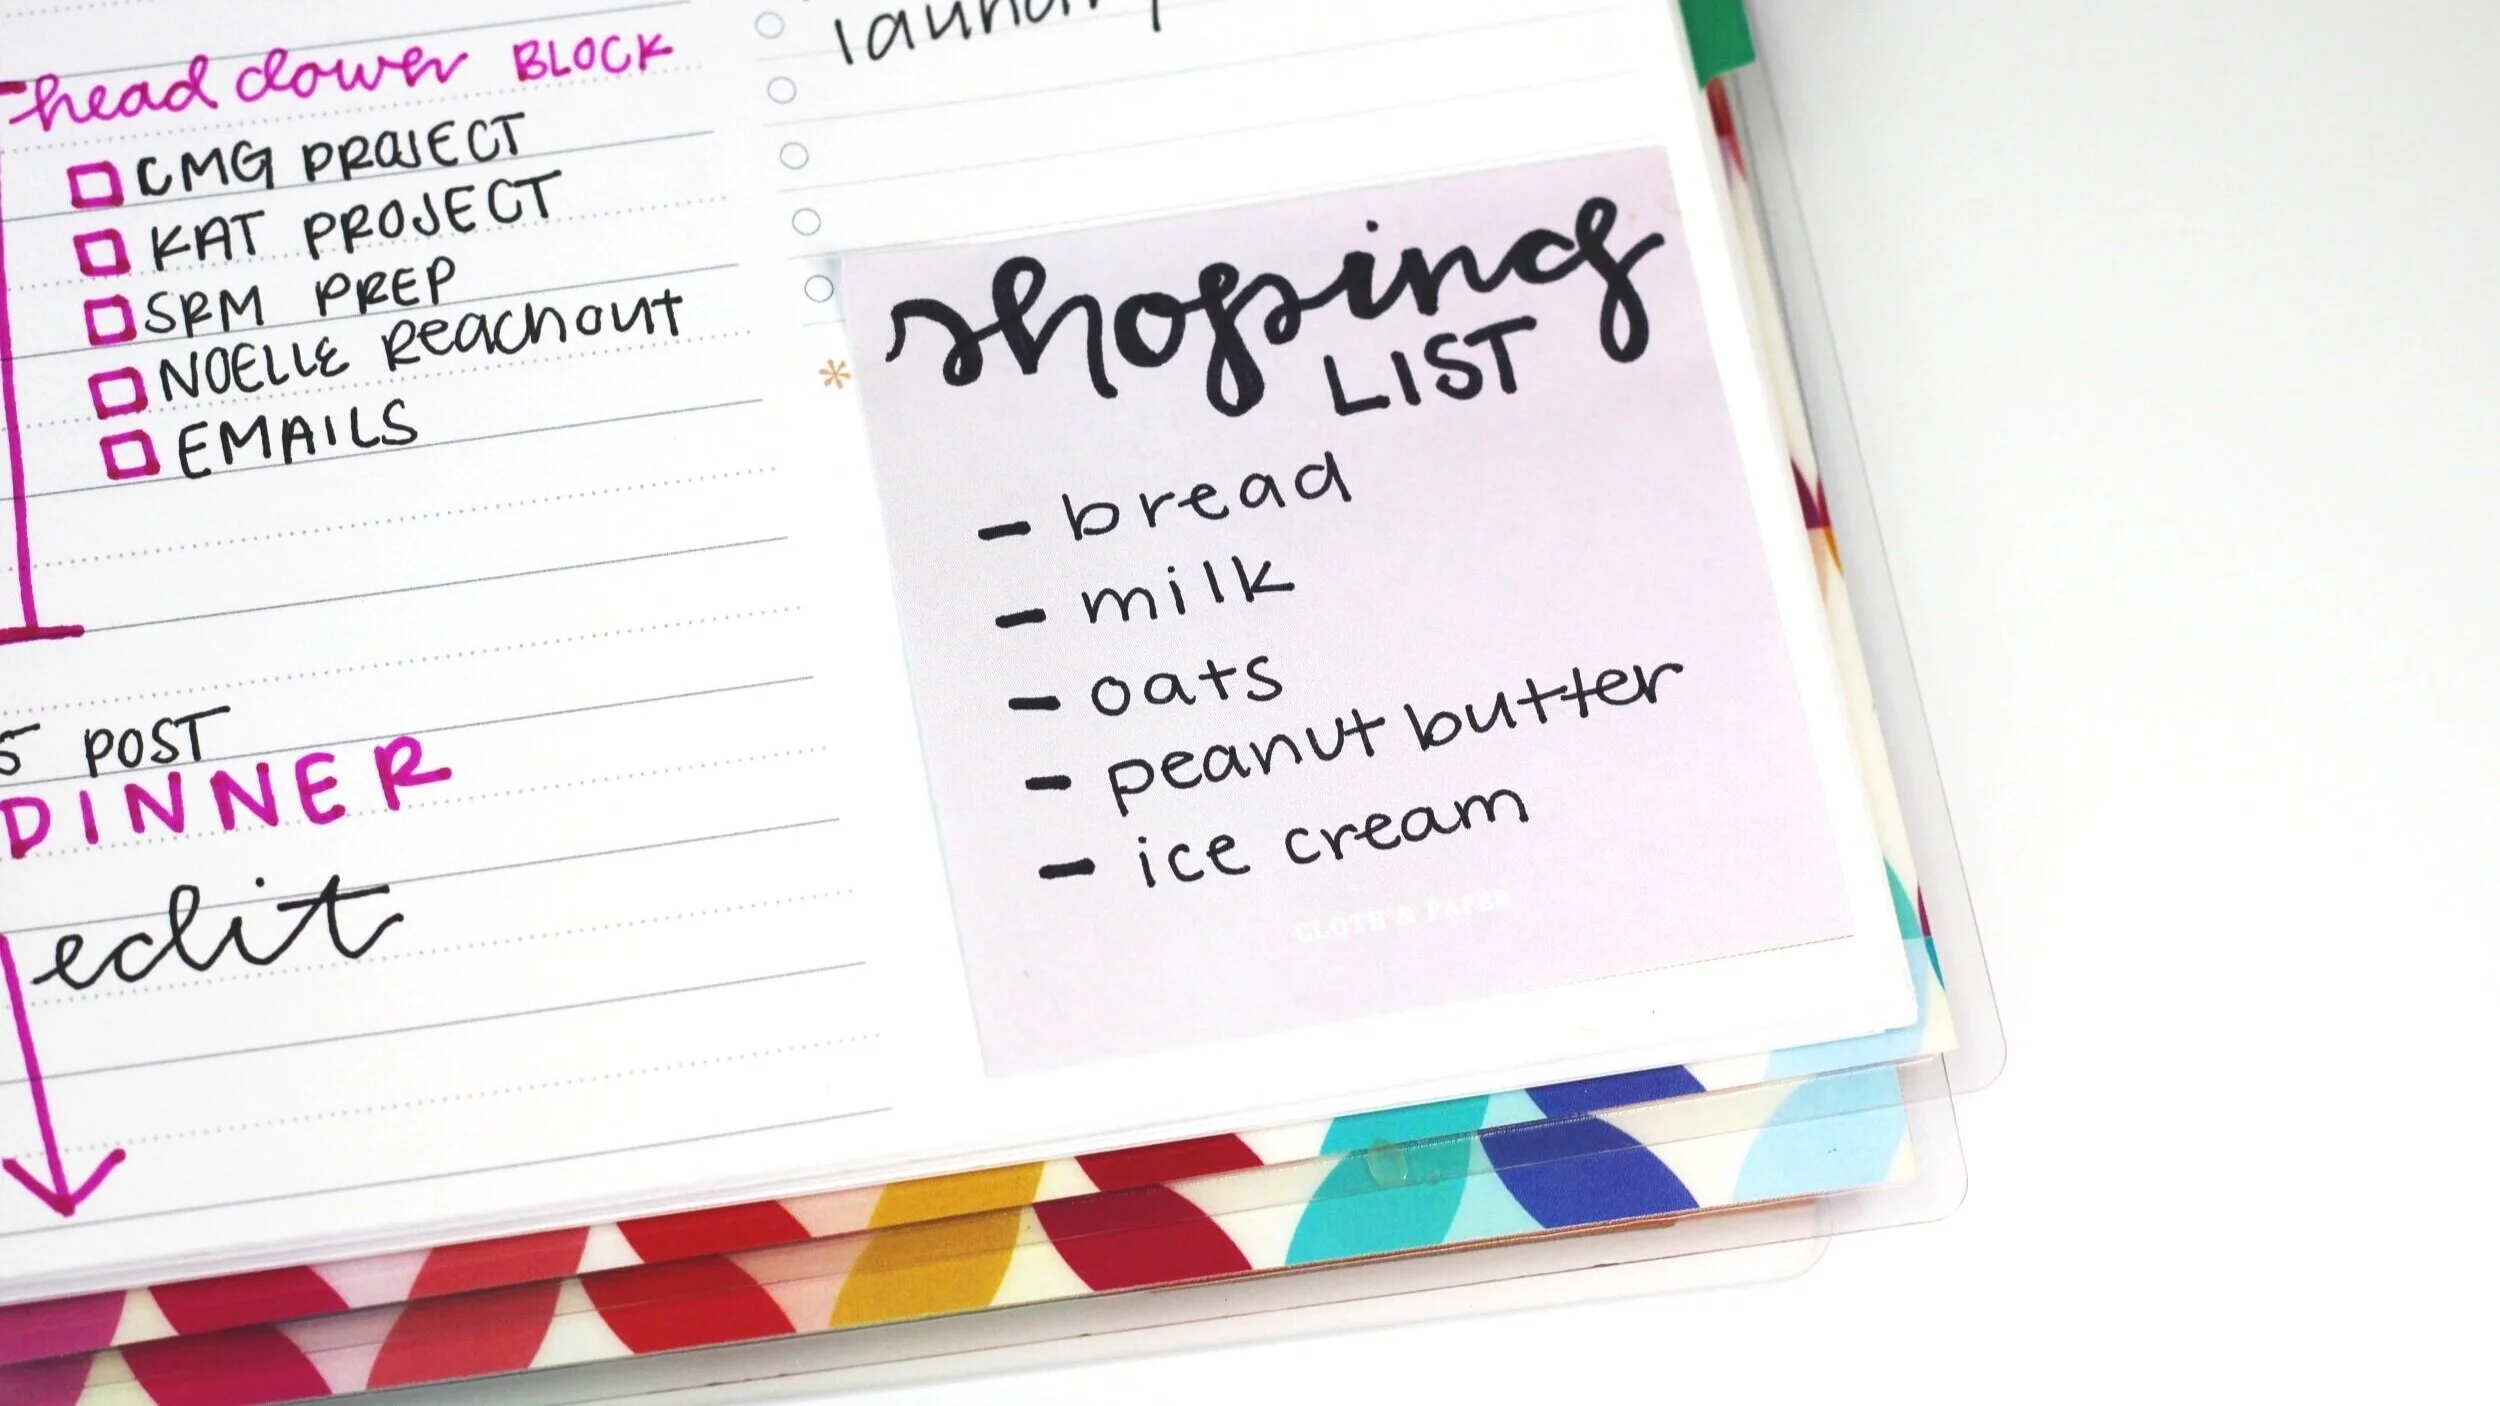 head down BLOCK
CMG PROJECT
KAT PROJECT
SRM PREP
NOELLE Reachout
EMAILS
POST
DINNER
edit
laundry
shoping
LIST
- bread
- milk
- oats
- peanut butter
- ice cream
CLOTH & PAPER